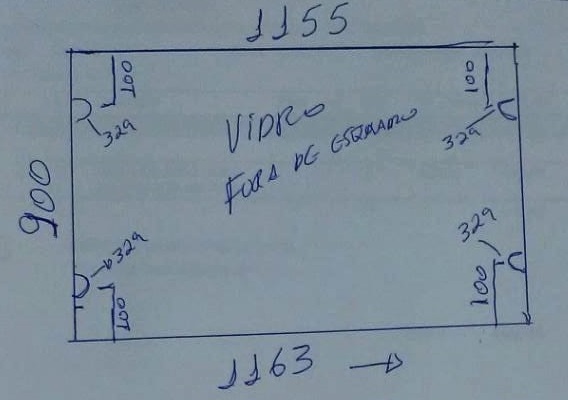 1155
100
100
329
329
VIDRO
FORA DE ESQUADRO
900
329
329
100
100
1163